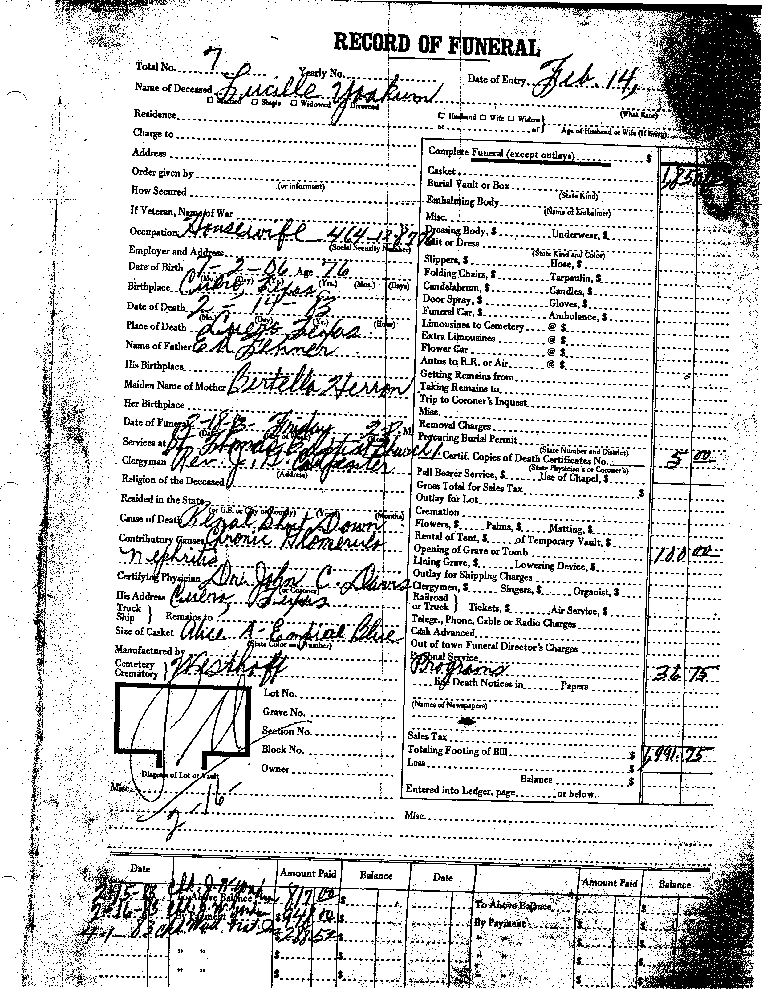 RECORD OF FUNERAL
Total No. 7 Yearly No. Date of Entry Feb. 14,
Name of Deceased Lucille Yoakum
Married Single Widowed Divorced (What Race)
Residence Husband Wife Widow of Age of Husband or Wife (if living)
Charge to
Address
Order given by (or informant)
How Secured
If Veteran, Name of War
Occupation Housewife (Social Security Number)
Employer and Address
Date of Birth Age 76
(Mo.) (Day) (Yrs.) (Mos.) (Days)
Birthplace Cuero, Texas
Date of Death 2-14-83
(Mo.) (Day) (Hour)
Place of Death Cuero, Texas
Name of Father
His Birthplace
Maiden Name of Mother Bertella Herron
Her Birthplace
Date of Funeral 2-18-83 Friday 2 P.M.
Services at St. Thomas Baptist Church
Clergyman Rev. Carpenter
(Address)
Religion of the Deceased
Resided in the State
(or U.S. City or County) (Years) (Months)
Cause of Death Renal Shut Down
Contributory Causes Chronic Glomerulo
nephritis
Certifying Physician Dr. John C.
His Address Cuero, Texas (or Coroner)
Truck Ship } Remains to
Size of Casket Alice A - Empire Blue
(State Color and Number)
Manufactured by
Cemetery Crematory } Westhoff
Lot No.
Grave No.
Section No.
Block No.
Owner
Diagram of Lot or Vault
Misc.
2-16
Complete Funeral (except outlays) $ 1,850.00
Casket
Burial Vault or Box (State Kind)
Embalming Body (Name of Embalmer)
Misc.
Dressing Body, $ Underwear, $
Suit or Dress (State Kind and Color)
Slippers, $ Hose, $
Folding Chairs, $ Tarpaulin, $
Candelabrum, $ Candles, $
Door Spray, $ Gloves, $
Funeral Car, $ Ambulance, $
Limousines to Cemetery @ $
Extra Limousines @ $
Flower Car @ $
Autos to R.R. or Air @ $
Getting Remains from
Taking Remains to
Trip to Coroner's Inquest
Misc.
Removal Charges
Procuring Burial Permit (State Number and District)
Certif. Copies of Death Certificates No. 5 00
(State Physician's or Coroner's)
Pall Bearer Service, $ Use of Chapel, $
Gross Total for Sales Tax $
Outlay for Lot
Cremation
Flowers, $ Palms, $ Matting, $
Rental of Tent, $ of Temporary Vault, $
Opening of Grave or Tomb 100 00
Lining Grave, $ Lowering Device, $
Outlay for Shipping Charges
Clergymen, $ Singers, $ Organist, $
Railroad or Truck } Tickets, $ Air Service, $
Telegr., Phone, Cable or Radio Charges
Cash Advanced
Out of town Funeral Director's Charges
Personal Service
Programs 36 75
Death Notices in Papers
(Names of Newspapers)
Sales Tax
Totaling Footing of Bill $ 1,991.75
Less $
Balance $
Entered into Ledger, page or below.
Misc.
Date Amount Paid Balance Date Amount Paid Balance
817.00 To Above Balance
By Payment